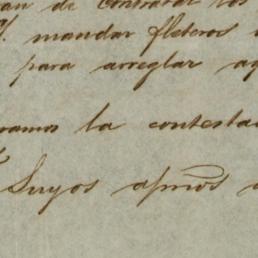 an de contratar los
V. mandar fleteros
para arreglar aq
ramos la contesta
Suyos afmos